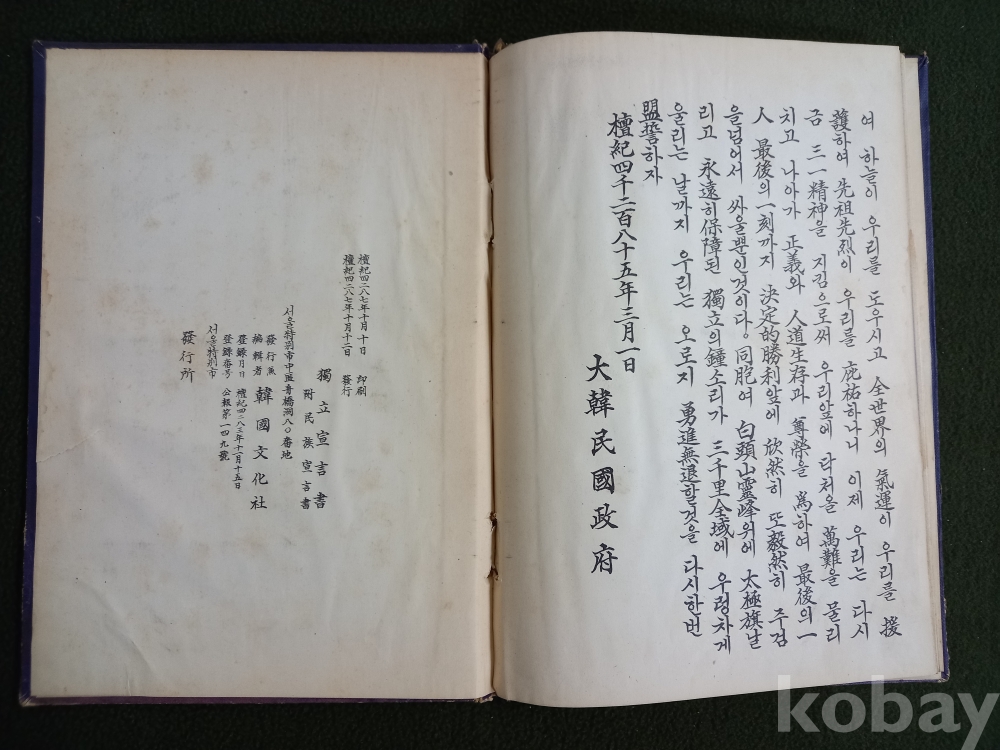 여 하늘이 우리를 도우시고 全世界의 氣運이 우리를 援
護하여 先祖先烈이 우리를 庇祐하나니 이제 우리는 다시
금 三一精神을 지킴으로써 우리앞에 닥처올 萬難을 물리
치고 나아가 正義와 人道生存과 尊榮을 爲하여 最後의 一
人 最後의 一刻까지 決定的勝利앞에 欣然히 또 毅然히 주검
을넘어서 싸울뿐인것이다。同胞여 白頭山靈峰위에 太極旗날
리고 永遠히保障된 獨立의鐘소리가 三千里全域에 우렁차게
울리는 날까지 우리는 오로지 勇進無退할것을 다시한번
盟誓하자
檀紀四千二百八十五年三月一日
大韓民國政府
檀紀四二八七年十月十日 印刷
檀紀四二八七年十月十二日 發行
獨立宣言書
附民族宣言書
서울特別市中區 八〇番地
發行兼
編輯者 韓國文化社
登錄月日 檀紀四二八三年十一月十五日
登錄番号 公報第一四九號
서울特別市
發行所
kobay